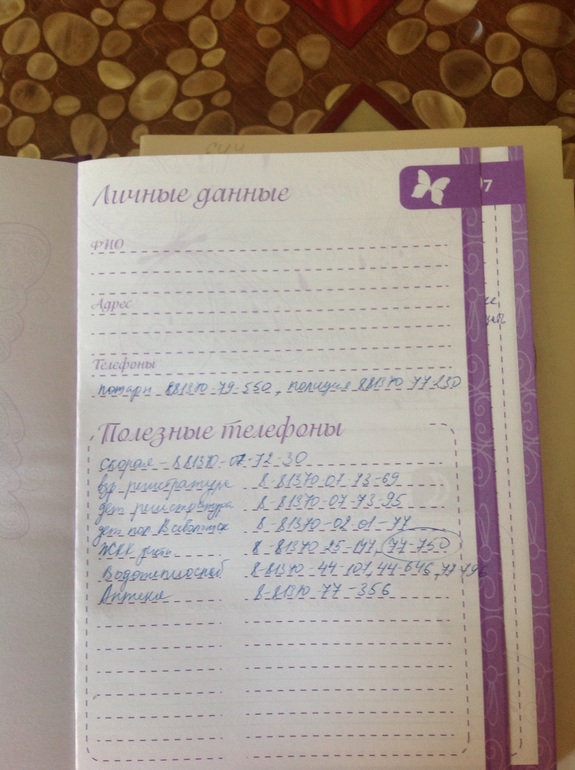 Личные данные
7
ФИО
Адрес
Телефоны
пожарн 881370-79-550, полиция 881370 77-230
Полезные телефоны
скорая - 8 81370-07-72-30
взр регистратура 8-81370 01-73-69
дет регистратура 8-81370-07-73-95
8-81370-02-01-77
ЖКК 8-81370-25-177, 77-750
Водотеплоснаб 8-81370-44-107, 44-646, 77-796
Аптека 8-81370-77-356